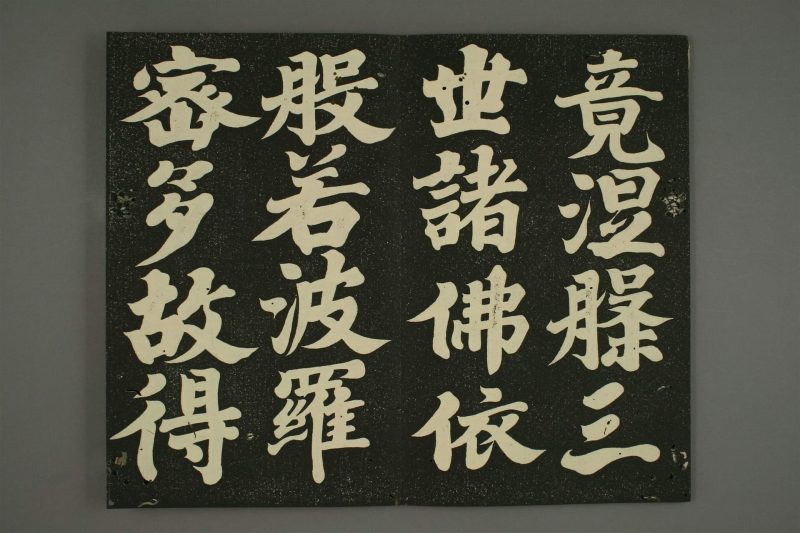 竟涅槃三
世諸佛依
般若波羅
蜜多故得